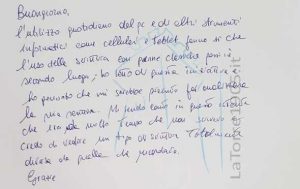 Buongiorno,
l'utilizzo quotidiano del pc e di altri strumenti
informatici come cellulari e tablet fanno sì che
l'uso della scrittura con penne classiche passi in
secondo luogo; ho letto di questa iniziativa e
ho pensato che mi sarebbe piaciuto far analizzare
la mia scrittura. Mi rendo conto in questo istante
che era da molto tempo che non scrivevo e
credo di vedere un tipo di scrittura totalmente
diversa da quella che ricordavo.
Grazie
LaTorre
.it